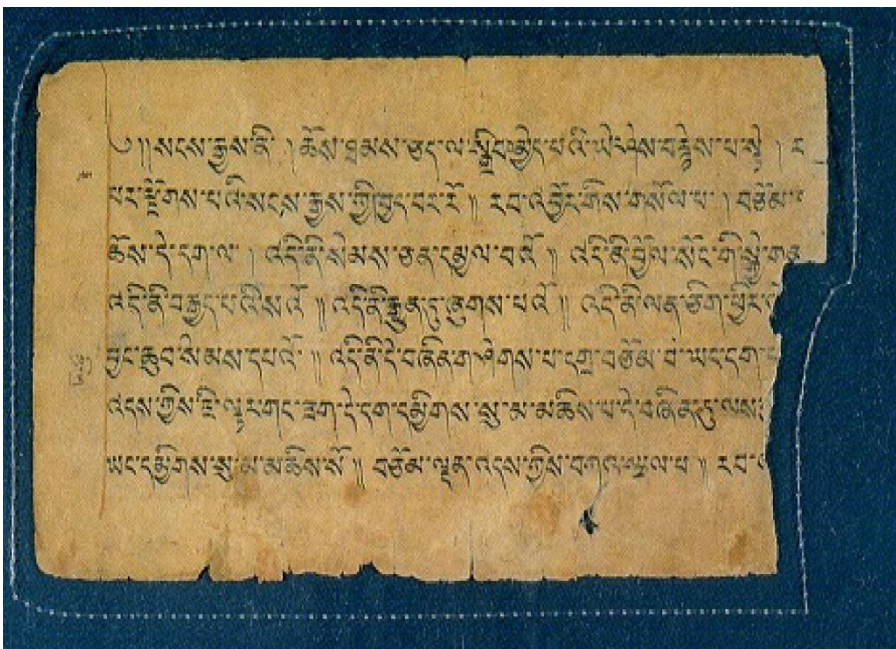 ༄།།སངས་རྒྱས་ནི་ །ཆོས་ཐམས་ཅད་ལ་སྒྲིབ་མྱེད་པའི་ཡེ་ཤེས་བརྙེས་པ་སྟེ །
པར་རྫོགས་པའི་སངས་རྒྱས་ཀྱི་ཁྱད་བར་རོ༎ རབ་འབྱོར་གིས་གསོལ་པ་ །བཅོམ་
ཆོས་དེ་དག་ལ་ །འདི་ནི་སེམས་ཅན་དམྱལ་བའོ༎ འདི་ནི་བྱོལ་སོང་གི་སྐྱེ་
འདི་ནི་བརྒྱད་པའིསའོ༎ འདི་ནི་རྒྱུན་དུ་ཞུགས་པའོ༎ འདི་ནི་ལན་ཅིག་ཕྱིར་
བྱང་ཆུབ་སེམས་དཔའོ་༎ འདི་ནི་དེ་བཞིན་གཤེགས་པ་དགྲ་བཅོམ་བ་ཡང་དག་
འདས་ཀྱིས་ཇི་ལྟར་གང་ཟག་དེ་དག་དམྱིགས་སུ་མ་མཆིས་པ་དེ་བཞིན་དུ་
ཡང་དམྱིགས་སུ་མ་མཆིས་སོ༎ བཅོམ་ལྡན་འདས་ཀྱིས་བཀའ་སྩལ་པ༎ རབ་